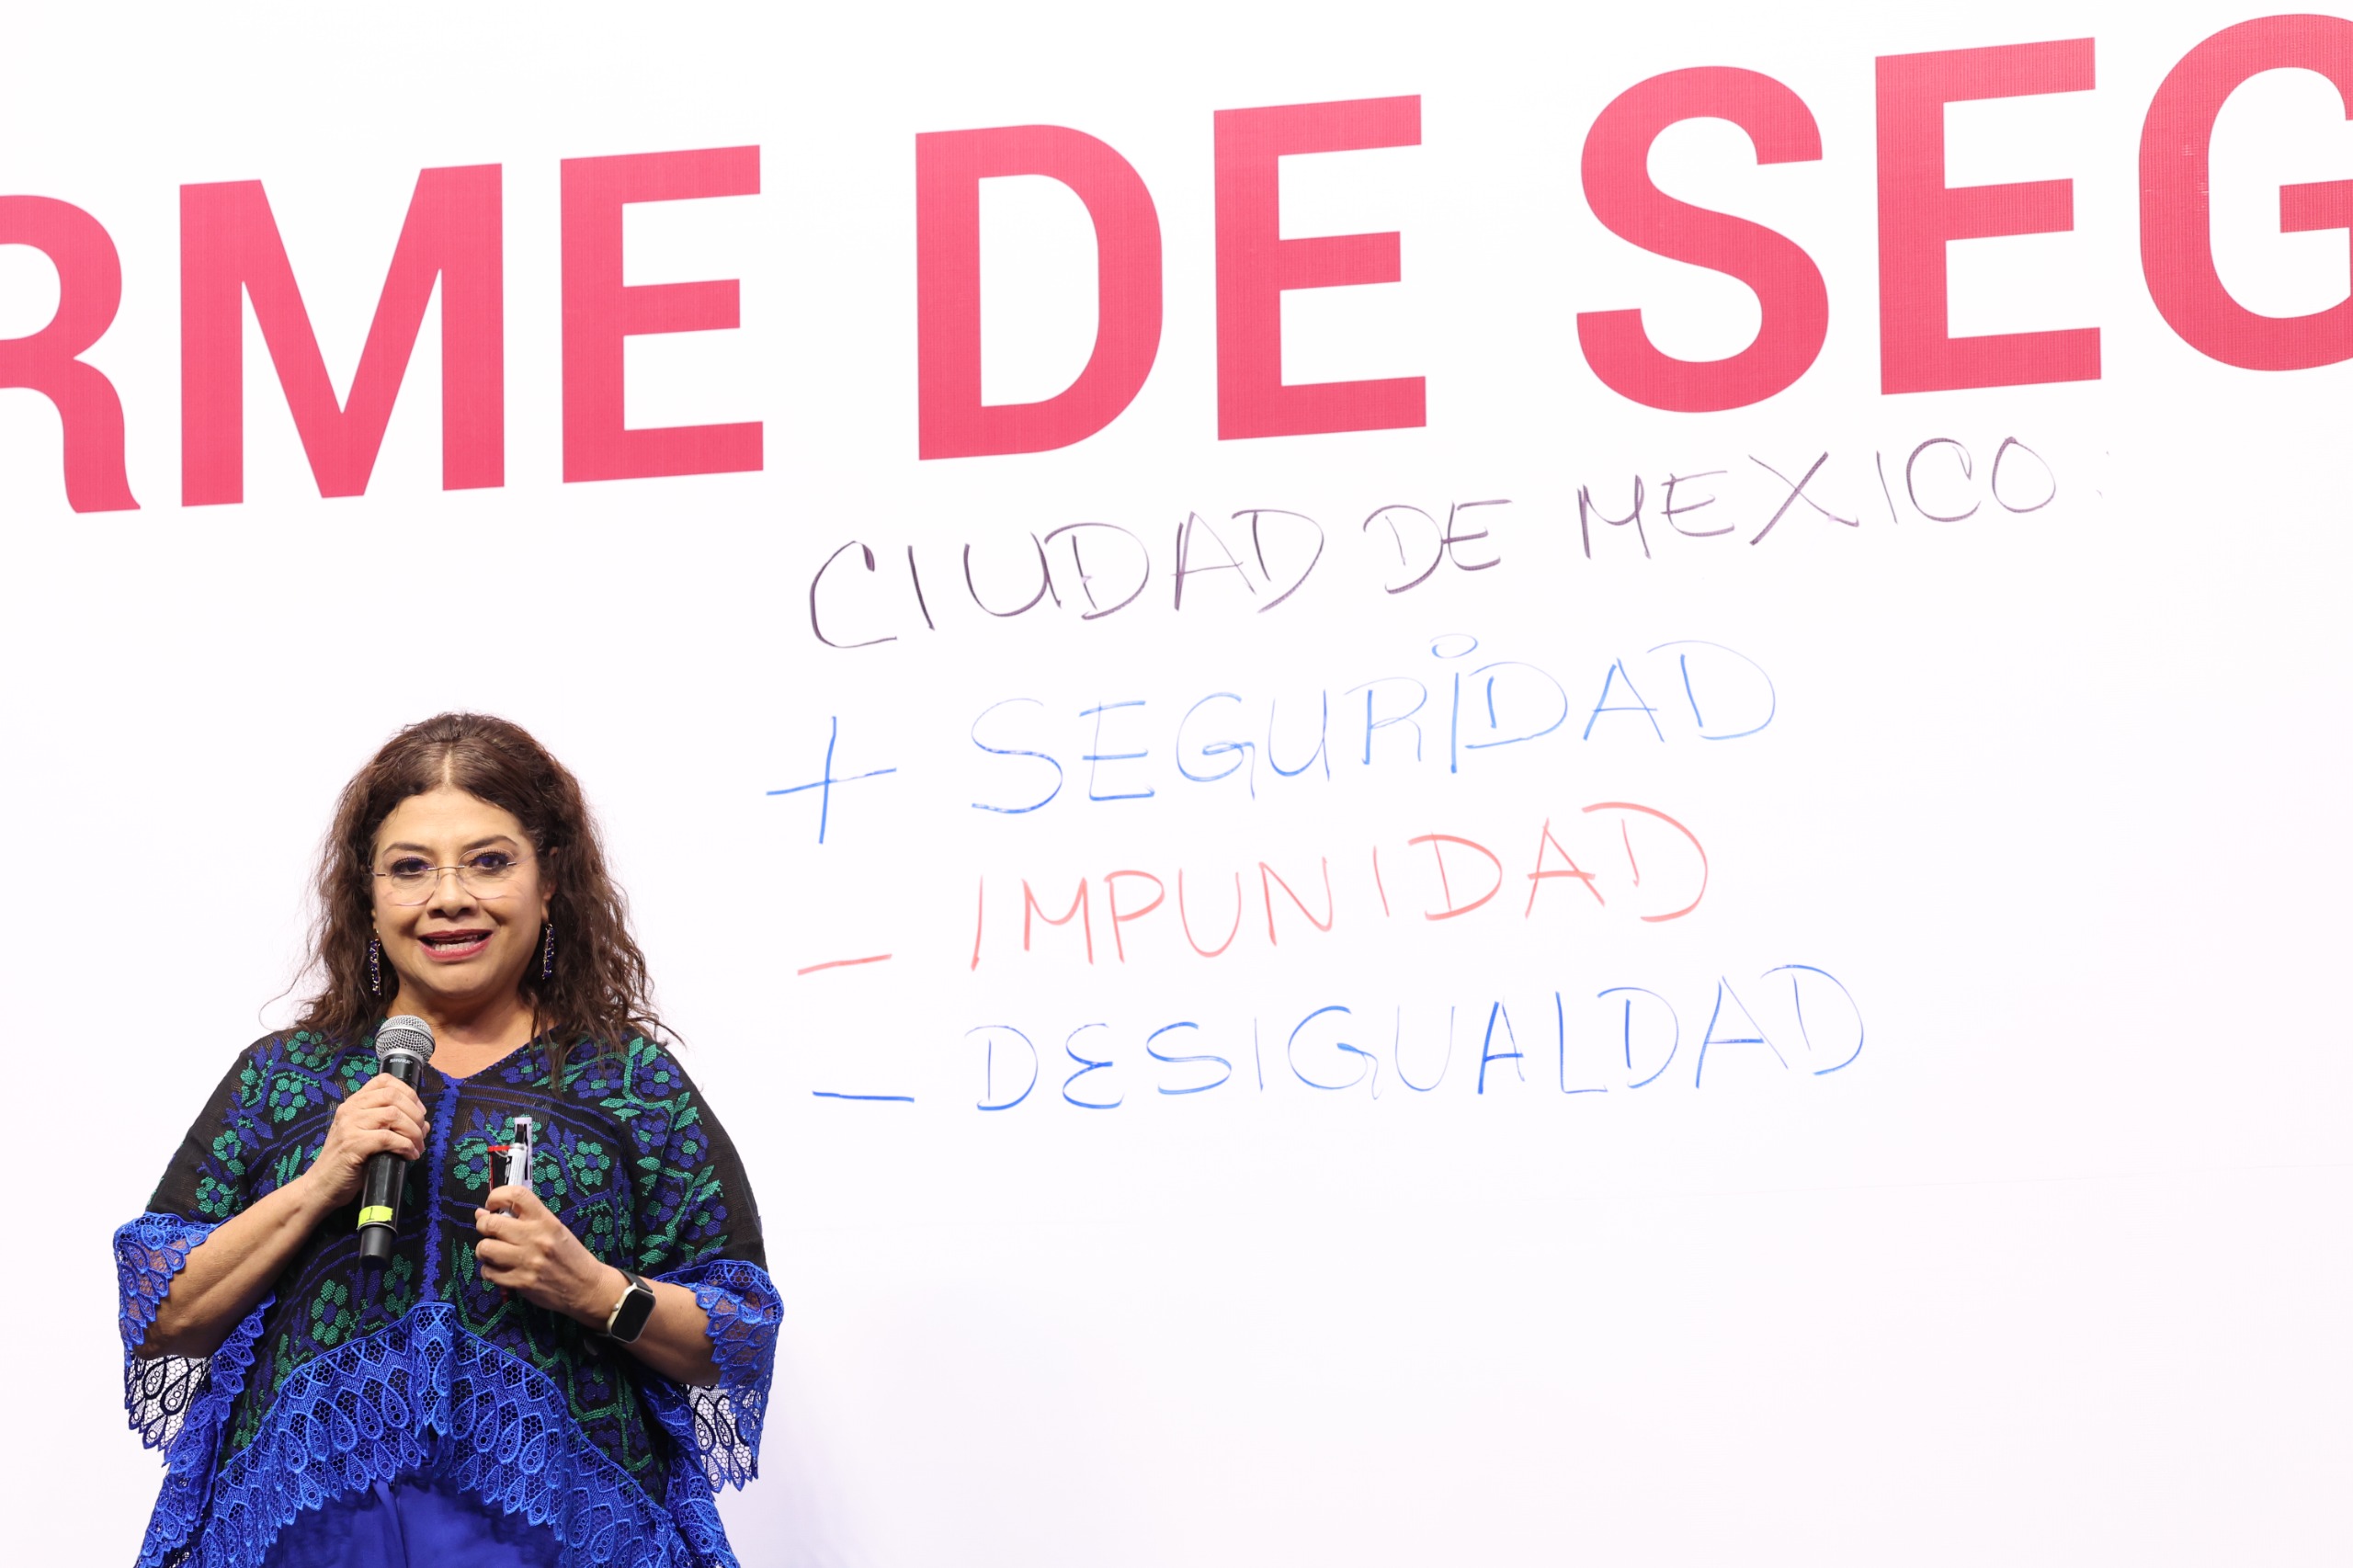 RME DE SEG
CIUDAD DE MEXICO:
+ SEGURIDAD
- IMPUNIDAD
- DESIGUALDAD
1